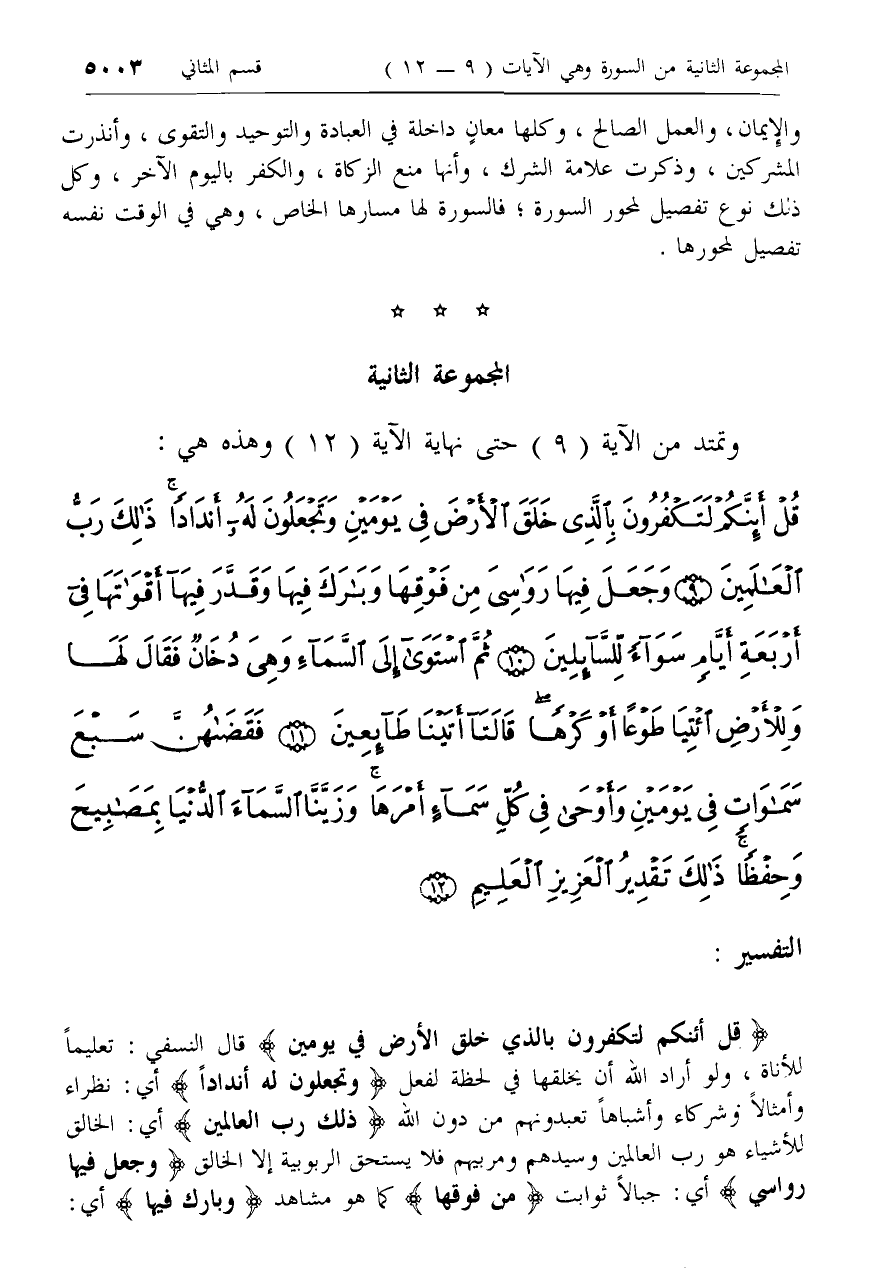 المجموعة الثانية من السورة وهي الآيات ( ٩ – ١٢ ) قسم المثاني ٥٠٠٣
والإيمان، والعمل الصالح ، وكلها معانٍ داخلة في العبادة والتوحيد والتقوى ، وأنذرت
المشركين ، وذكرت علامة الشرك ، وأنها منع الزكاة ، والكفر باليوم الآخر ، وكل
ذلك نوع تفصيل لمحور السورة ؛ فالسورة لها مسارها الخاص ، وهي في الوقت نفسه
تفصيل لمحورها .
☆ ☆ ☆
المجموعة الثانية
وتمتد من الآية ( ٩ ) حتى نهاية الآية ( ١٢ ) وهذه هي :
قُلْ أَئِنَّكُمْ لَتَكْفُرُونَ بِٱلَّذِى خَلَقَ ٱلْأَرْضَ فِى يَوْمَيْنِ وَتَجْعَلُونَ لَهُۥٓ أَندَادًاۚ ذَٰلِكَ رَبُّ
ٱلْعَـٰلَمِينَ ۝٩ وَجَعَلَ فِيهَا رَوَٰسِىَ مِن فَوْقِهَا وَبَـٰرَكَ فِيهَا وَقَدَّرَ فِيهَآ أَقْوَٰتَهَا فِىٓ
أَرْبَعَةِ أَيَّامٍ سَوَآءً لِّلسَّآئِلِينَ ۝١٠ ثُمَّ ٱسْتَوَىٰٓ إِلَى ٱلسَّمَآءِ وَهِىَ دُخَانٌ فَقَالَ لَهَا
وَلِلْأَرْضِ ٱئْتِيَا طَوْعًا أَوْ كَرْهًاۖ قَالَتَآ أَتَيْنَا طَآئِعِينَ ۝١١ فَقَضَىٰهُنَّ سَبْعَ
سَمَـٰوَاتٍ فِى يَوْمَيْنِ وَأَوْحَىٰ فِى كُلِّ سَمَآءٍ أَمْرَهَاۚ وَزَيَّنَّا ٱلسَّمَآءَ ٱلدُّنْيَا بِمَصَـٰبِيحَ
وَحِفْظًاۚ ذَٰلِكَ تَقْدِيرُ ٱلْعَزِيزِ ٱلْعَلِيمِ ۝١٢
التفسير :
﴿ قل أئنكم لتكفرون بالذي خلق الأرض في يومين ﴾ قال النسفي : تعليماً
للأناة ، ولو أراد الله أن يخلقها في لحظة لفعل ﴿ وتجعلون له أنداداً ﴾ أي : نظراء
وأمثالاً وشركاء وأشباهاً تعبدونهم من دون الله ﴿ ذلك رب العالمين ﴾ أي : الخالق
للأشياء هو رب العالمين وسيدهم ومربيهم فلا يستحق الربوبية إلا الخالق ﴿ وجعل فيها
رواسي ﴾ أي : جبالاً ثوابت ﴿ من فوقها ﴾ كما هو مشاهد ﴿ وبارك فيها ﴾ أي :